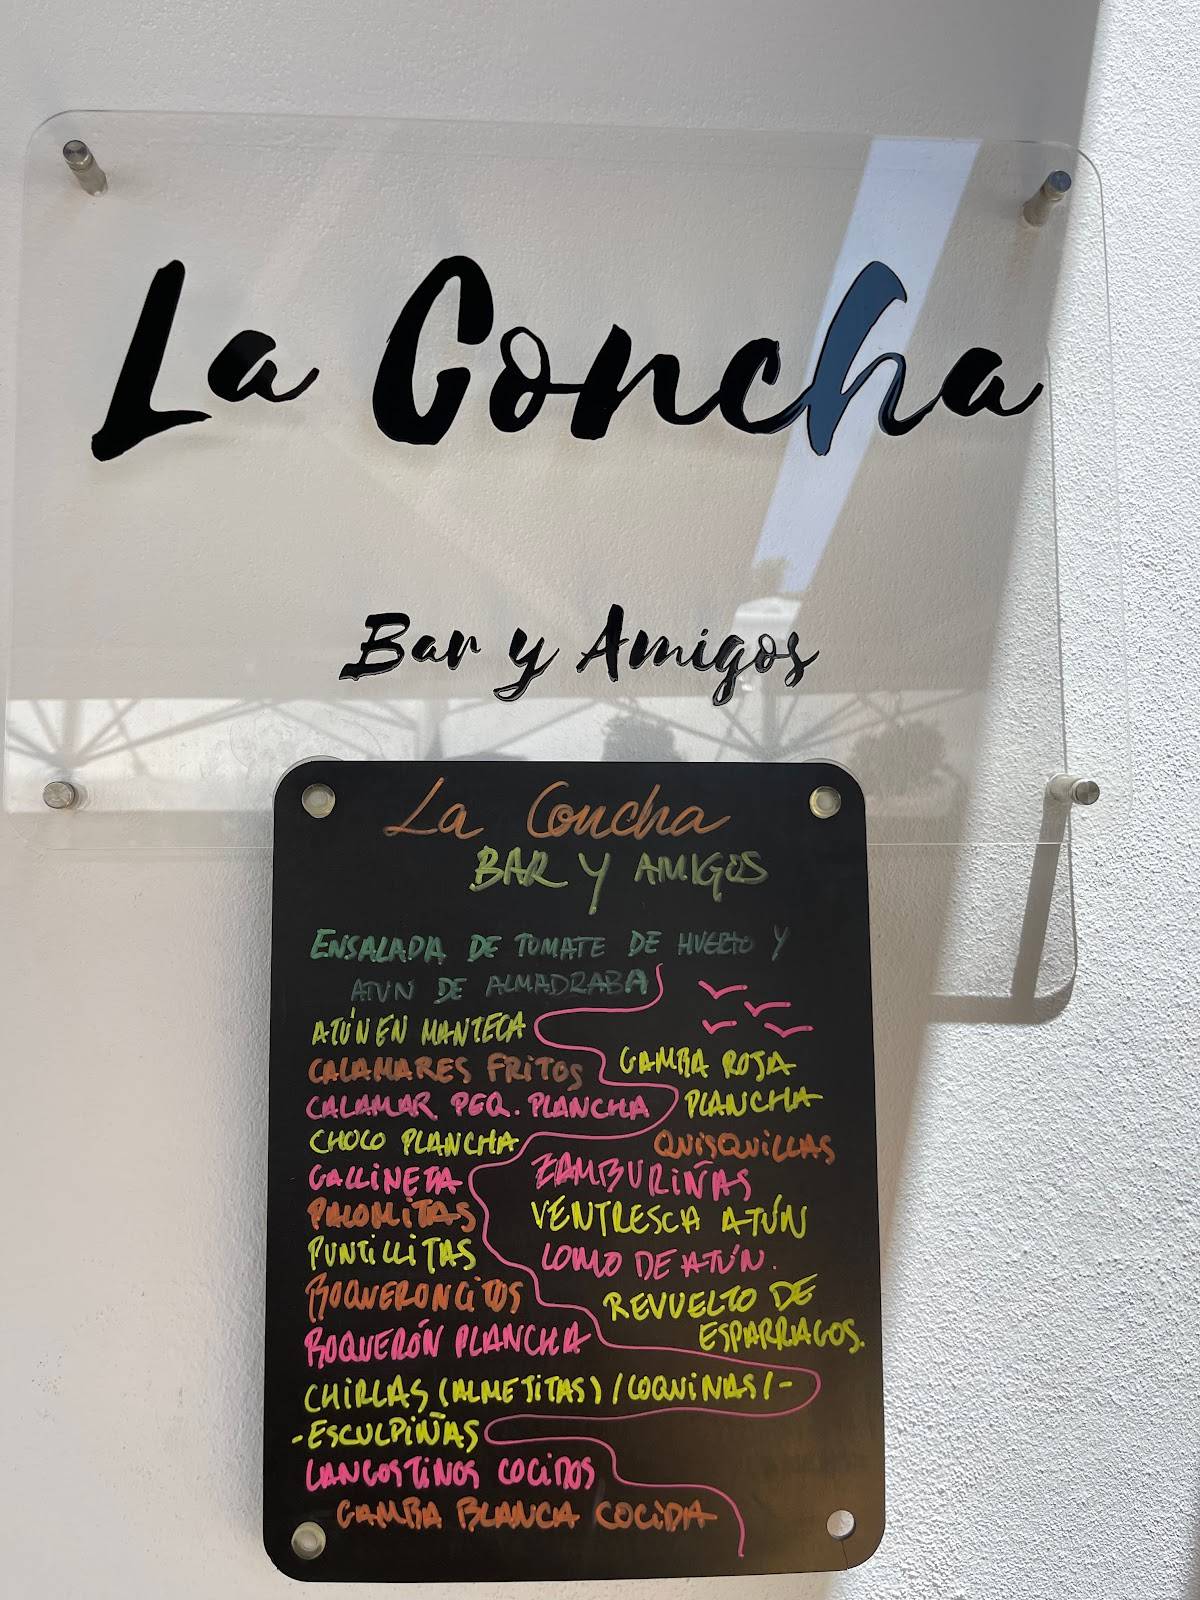 La Concha
Bar y Amigos
La Concha
BAR Y AMIGOS
ENSALADA DE TOMATE DE HUERTO Y
ATUN DE ALMADRABA
ATÚN EN MANTECA
CALAMARES FRITOS
CALAMAR PEQ. PLANCHA
CHOCO PLANCHA
GALLINETA
PALOMITAS
PUNTILLITAS
BOQUERONCITOS
BOQUERÓN PLANCHA
CHIRLAS (ALMEJITAS) / COQUINAS / -
- ESCULPIÑAS
LANGOSTINOS COCIDOS
GAMBA BLANCA COCIDA
GAMBA ROJA
PLANCHA
QUISQUILLAS
ZAMBURIÑAS
VENTRESCA ATÚN
LOMO DE ATÚN.
REVUELTO DE
ESPARRAGOS.